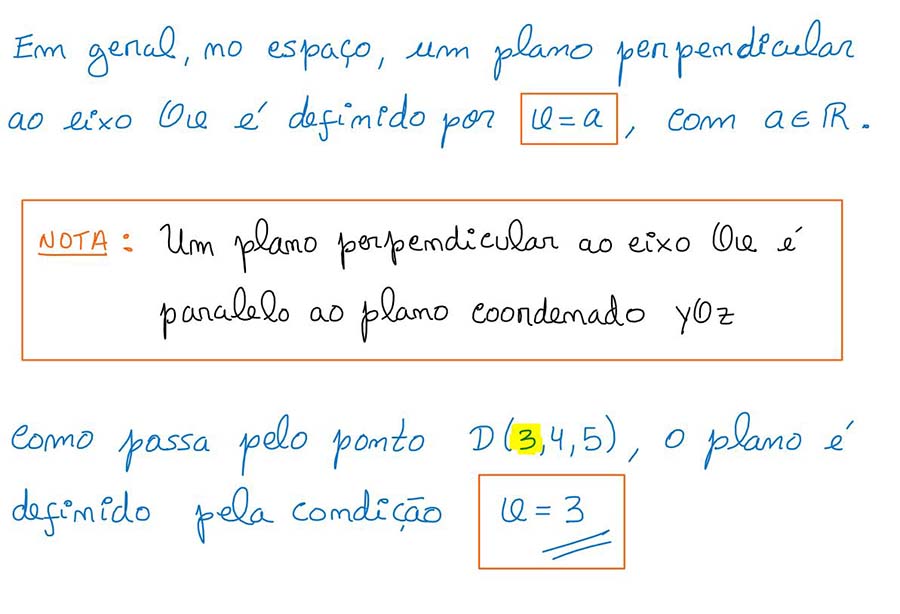 Em geral, no espaço, um plano perpendicular
ao eixo Ox é definido por x = a, com a ∈ ℝ.
NOTA: Um plano perpendicular ao eixo Ox é
paralelo ao plano coordenado yOz
Como passa pelo ponto D(3,4,5), o plano é
definido pela condição x = 3